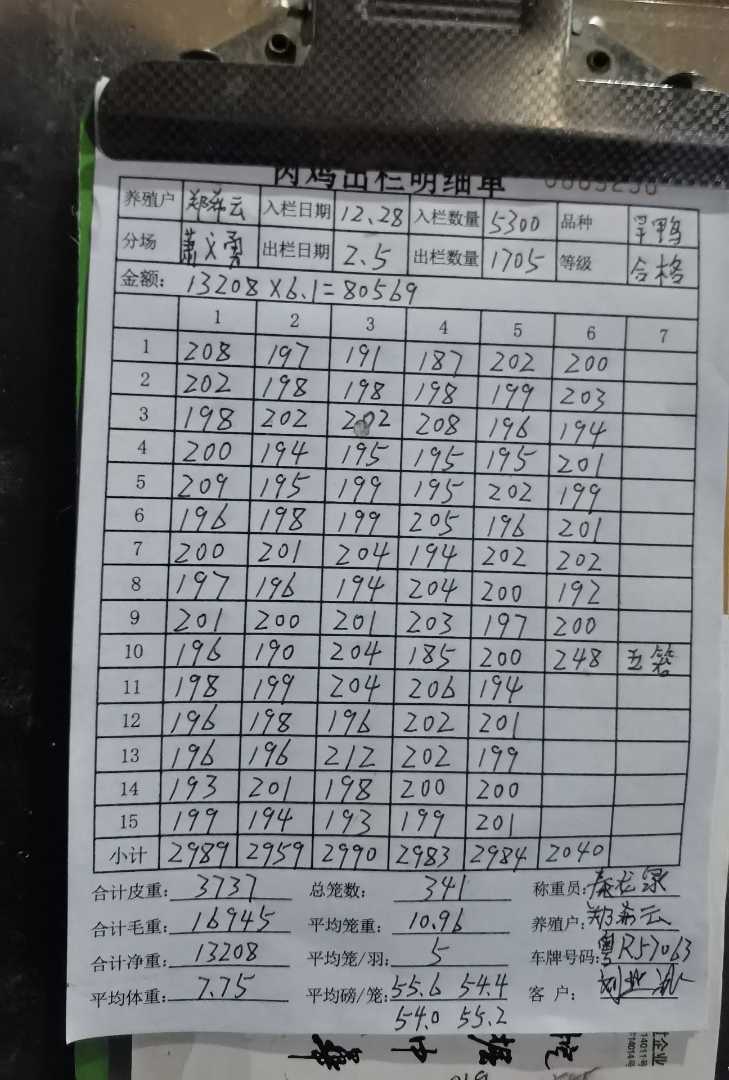 肉鸡出栏明细单
养殖户 郑希云 入栏日期 12.28 入栏数量 5300 品种 旱鸭
分场 萧义勇 出栏日期 2.5 出栏数量 1705 等级 合格
金额: 13208×6.1=80569
1 2 3 4 5 6 7
1 208 197 191 187 202 200
2 202 198 198 198 199 203
3 198 202 202 208 196 194
4 200 194 195 195 195 201
5 209 195 199 195 202 199
6 196 198 199 205 196 201
7 200 201 204 194 202 202
8 197 196 194 204 200 192
9 201 200 201 203 197 200
10 196 190 204 185 200 248 五笼
11 198 199 204 206 194
12 196 198 196 202 201
13 196 196 212 202 199
14 193 201 198 200 200
15 199 194 193 199 201
小计 2989 2959 2990 2983 2984 2040
合计皮重: 3737 总笼数: 341 称重员:
合计毛重: 16945 平均笼重: 10.96 养殖户: 郑希云
合计净重: 13208 平均笼/羽: 5 车牌号码: 粤R57063
平均体重: 7.75 平均磅/笼: 55.6 54.4 客户:
54.0 55.2